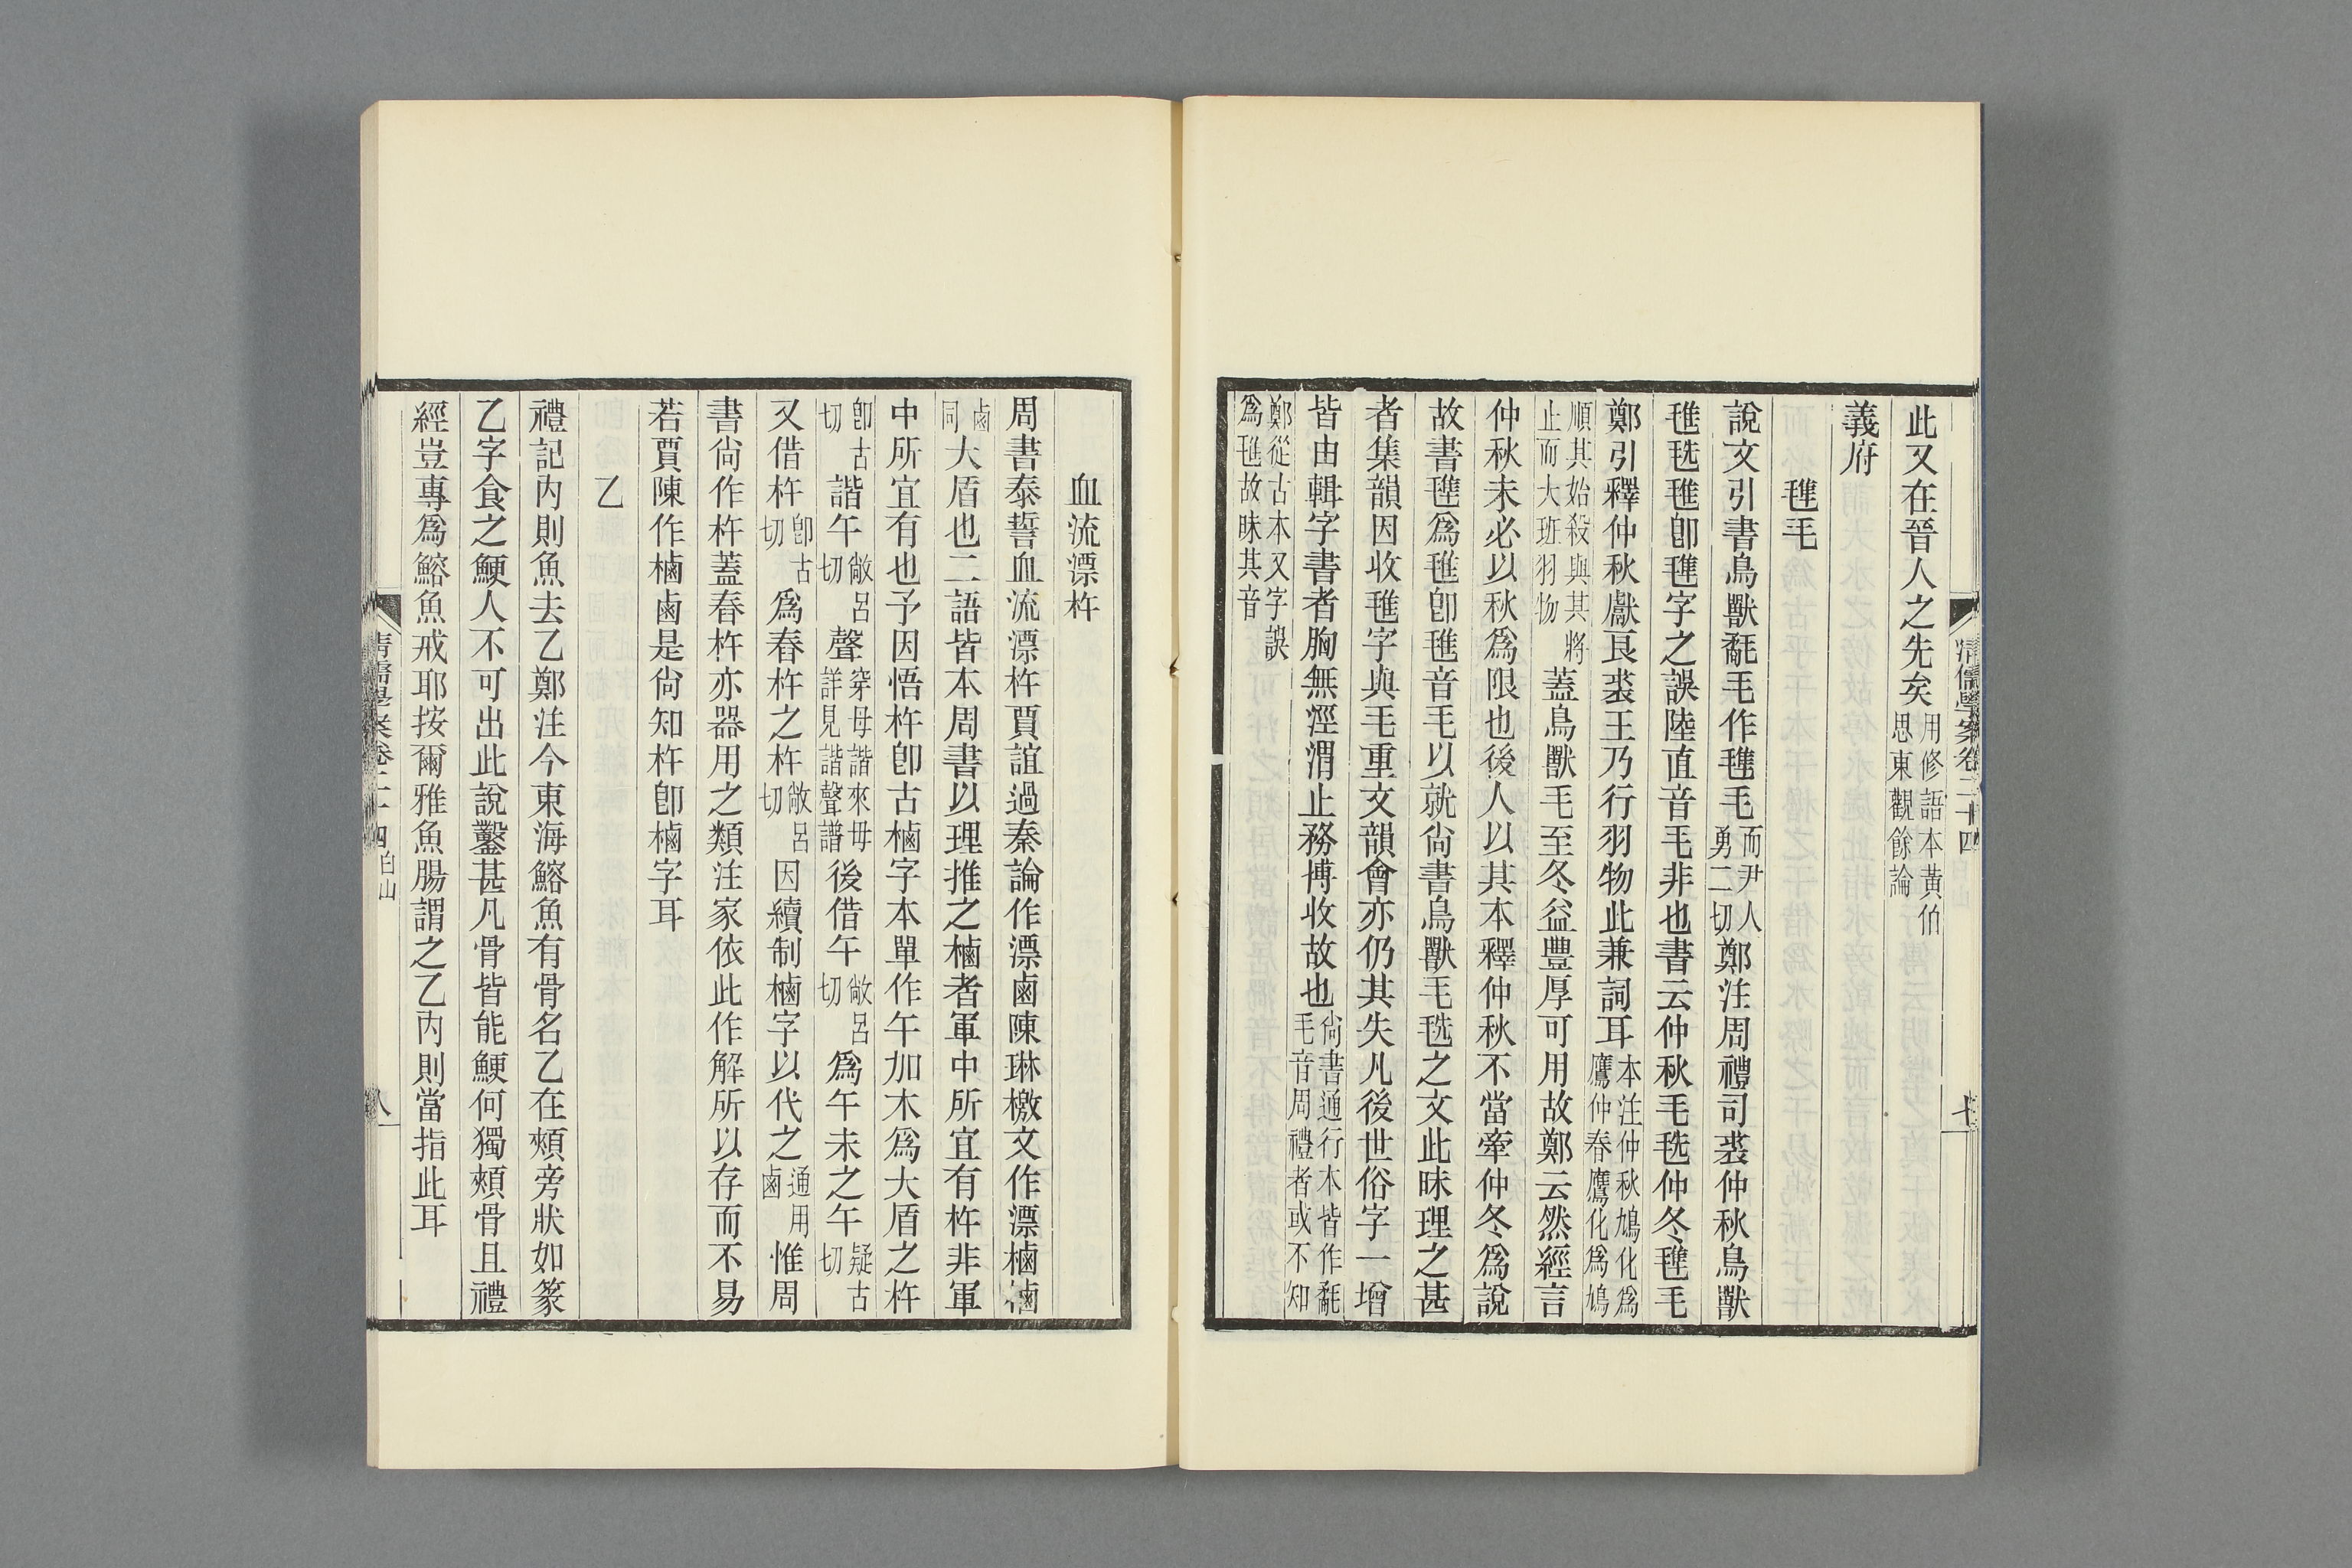 清儒學案卷二十四 七
此又在晉人之先矣用修語本黃伯思東觀餘論
義府
𣯍毛
說文引書鳥獸氄毛作𣯍毛而尹人勇二切鄭注周禮司裘仲秋鳥獸
⿺毛隹毨⿺毛隹卽𣯍字之誤陸直音毛非也書云仲秋毛毨仲冬𣯍毛
鄭引釋仲秋獻良裘王乃行羽物此兼詞耳本注仲秋鳩化爲鷹仲春鷹化爲鳩
順其始殺與其將止而大班羽物蓋鳥獸毛至冬益豐厚可用故鄭云然經言
仲秋未必以秋爲限也後人以其本釋仲秋不當牽仲冬爲說
故書𣯍爲⿺毛隹卽⿺毛隹音毛以就尙書鳥獸毛毨之文此昧理之甚
者集韻因收⿺毛隹字與毛重文韻會亦仍其失凡後世俗字一增
皆由輯字書者胸無涇渭止務博收故也尙書通行本皆作氄毛音周禮者或不知
鄭從古本又字誤爲⿺毛隹故昧其音
血流漂杵
周書泰誓血流漂杵賈誼過秦論作漂鹵陳琳檄文作漂樐樐
鹵同大盾也二語皆本周書以理推之樐者軍中所宜有杵非軍
中所宜有也予因悟杵卽古樐字本單作午加木爲大盾之杵
卽古切諧午敞呂切聲穿母諧來母詳見諧聲譜後借午敞呂切爲午未之午疑古切
又借杵卽古切爲舂杵之杵敞呂切因續制樐字以代之通用鹵惟周
書尙作杵蓋舂杵亦器用之類注家依此作解所以存而不易
若賈陳作樐鹵是尙知杵卽樐字耳
乙
禮記內則魚去乙鄭注今東海鰫魚有骨名乙在頰旁狀如篆
乙字食之鯁人不可出此說鑿甚凡骨皆能鯁何獨頰骨且禮
經豈專爲鰫魚戒耶按爾雅魚腸謂之乙內則當指此耳
清儒學案卷二十四 白山 八